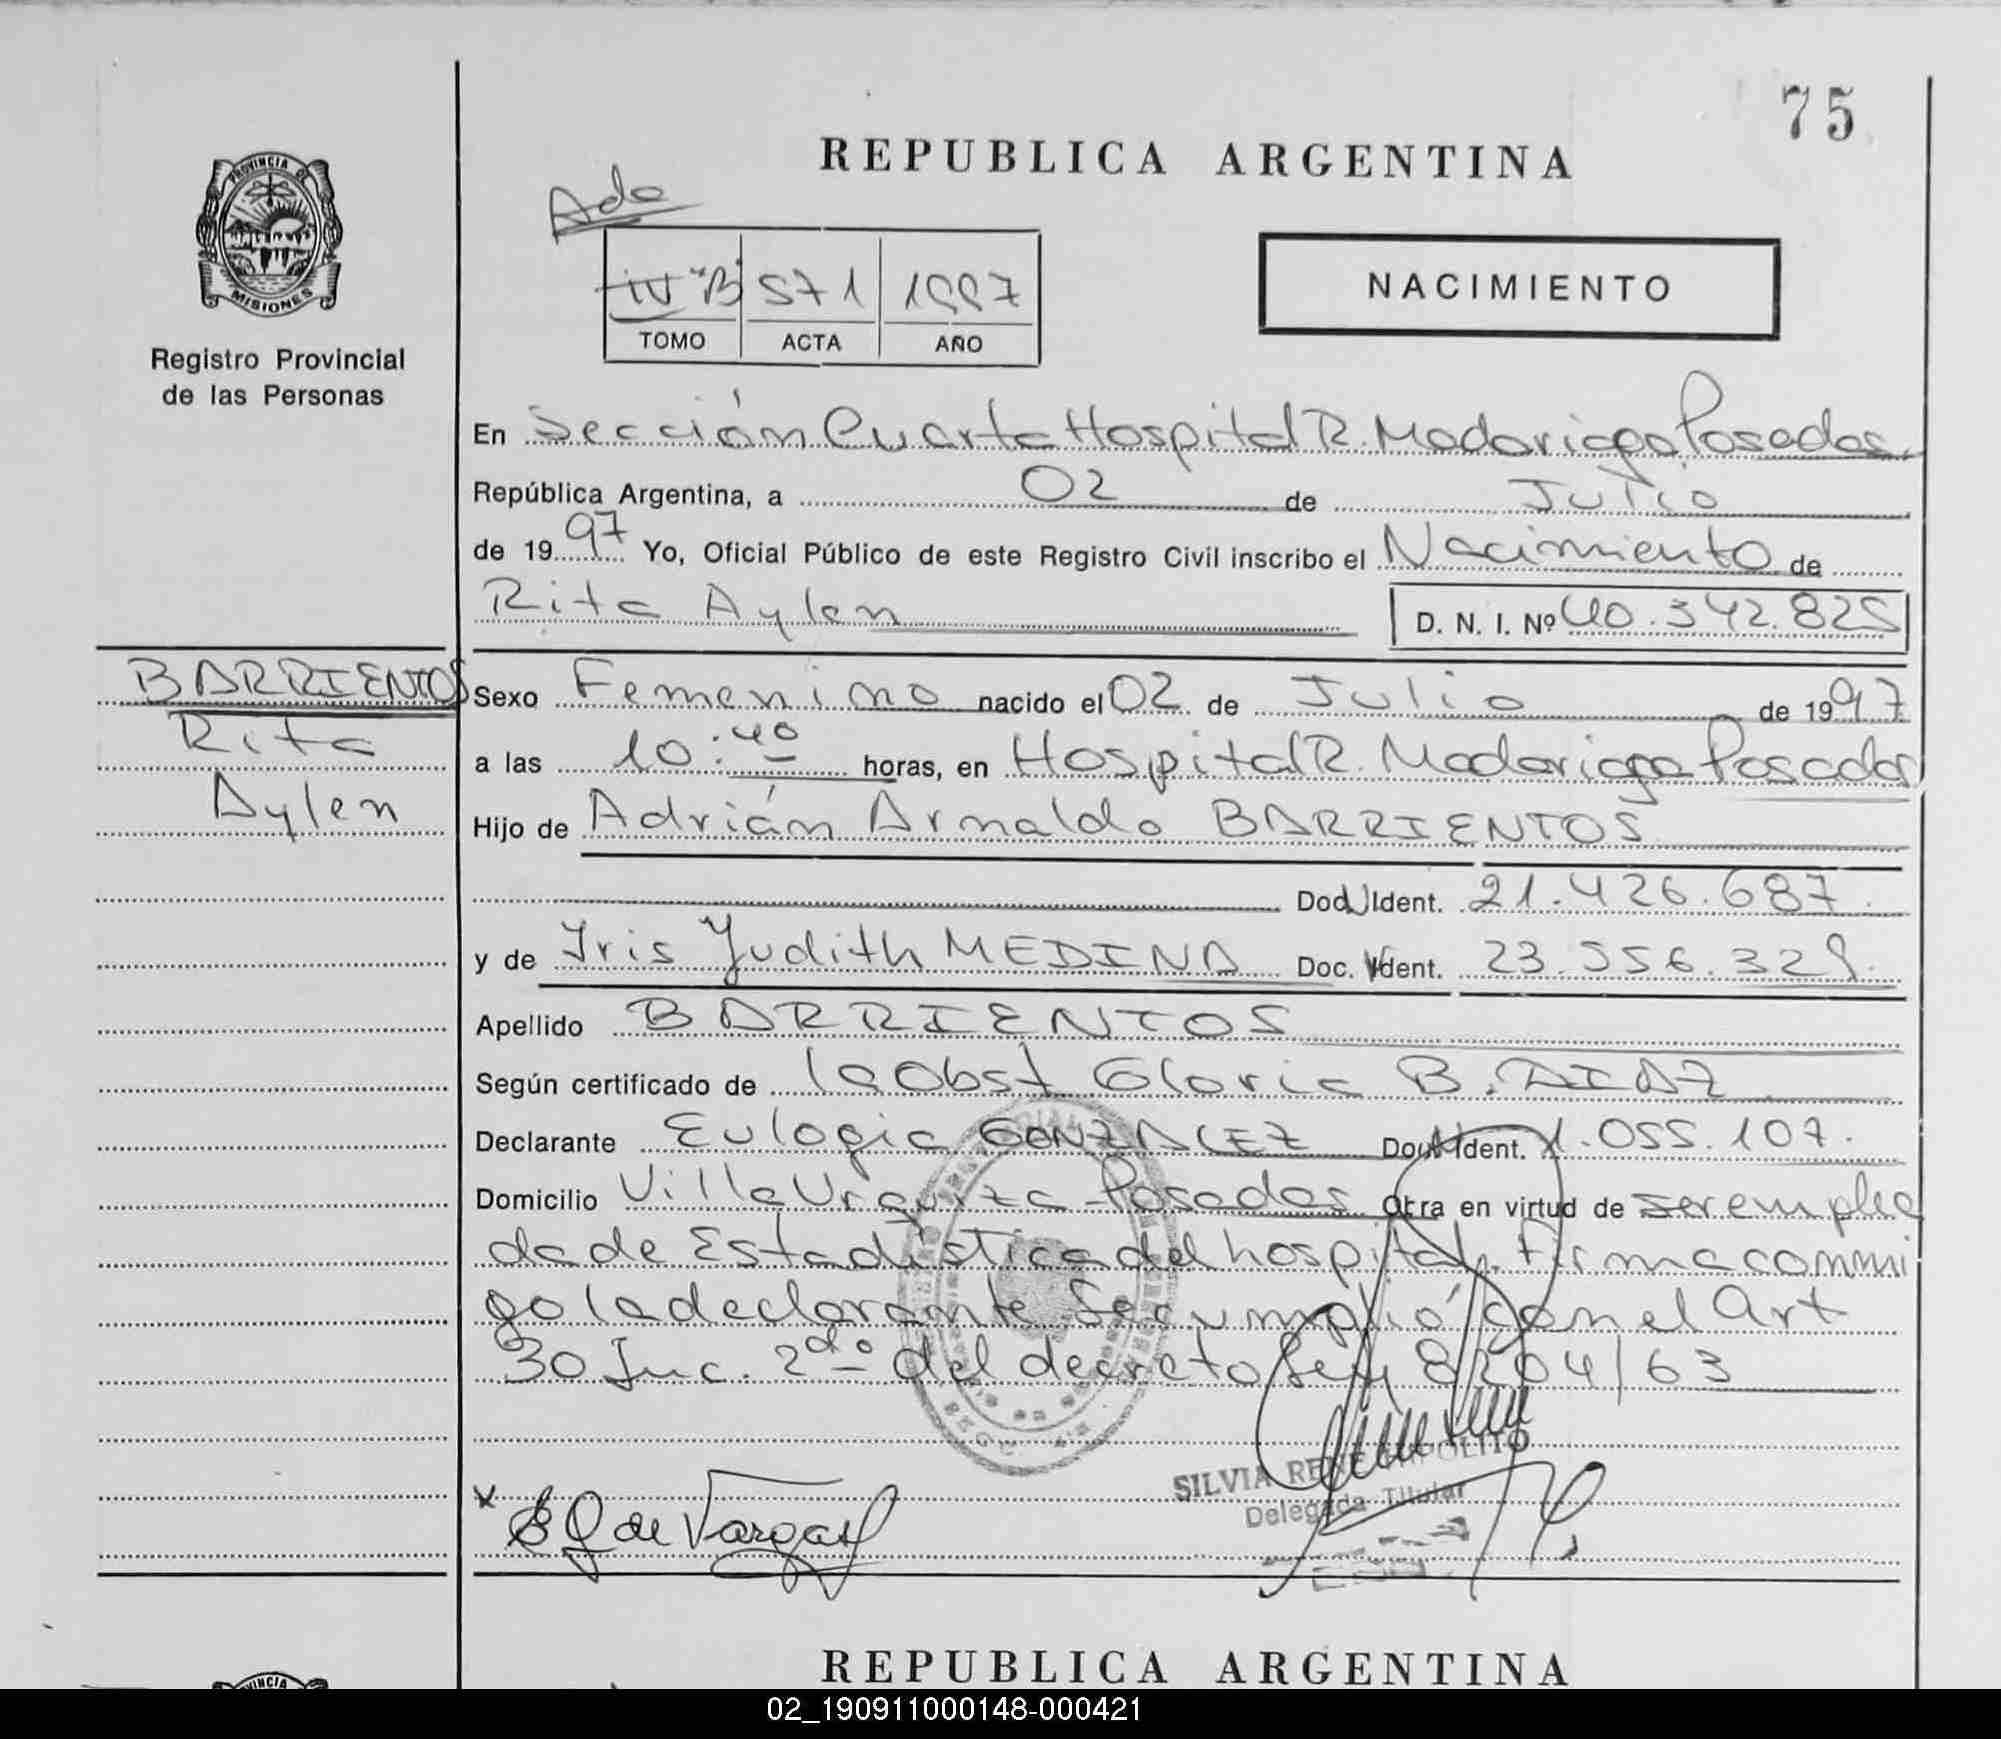 75
REPUBLICA ARGENTINA
PROVINCIA DE
MISIONES
Registro Provincial
de las Personas
Ado
IV "B" 571 1997
TOMO ACTA AÑO
NACIMIENTO
En Sección Cuarta Hospital R. Madariaga Posadas
República Argentina, a 02 de Julio
de 1997 Yo, Oficial Público de este Registro Civil inscribo el Nacimiento de
Rita Aylen D. N. I. Nº 40.342.825
BARRIENTOS
Rita
Aylen
Sexo Femenino nacido el 02 de Julio de 1997
a las 10:40 horas, en Hospital R. Madariaga Posadas
Hijo de Adrián Arnaldo BARRIENTOS
Doc. Ident. 21.426.687.
y de Iris Judith MEDINA Doc. Ident. 23.556.329.
Apellido BARRIENTOS
Según certificado de la Obst Gloria B. DIAZ
Declarante Eulogia GONZALEZ Doc. Ident. 1.055.107.
Domicilio Villa Urquiza Posadas Otra en virtud de ser emplea
da de Estadística del hospital. Firma conmi
go la declarante Se cumplió con el Art
30 Inc. 2do del decreto Ley 8204/63
SILVIA RENE HIPOLITO
Delegada Titular
E G de Vargas
REPUBLICA ARGENTINA
02_190911000148-000421